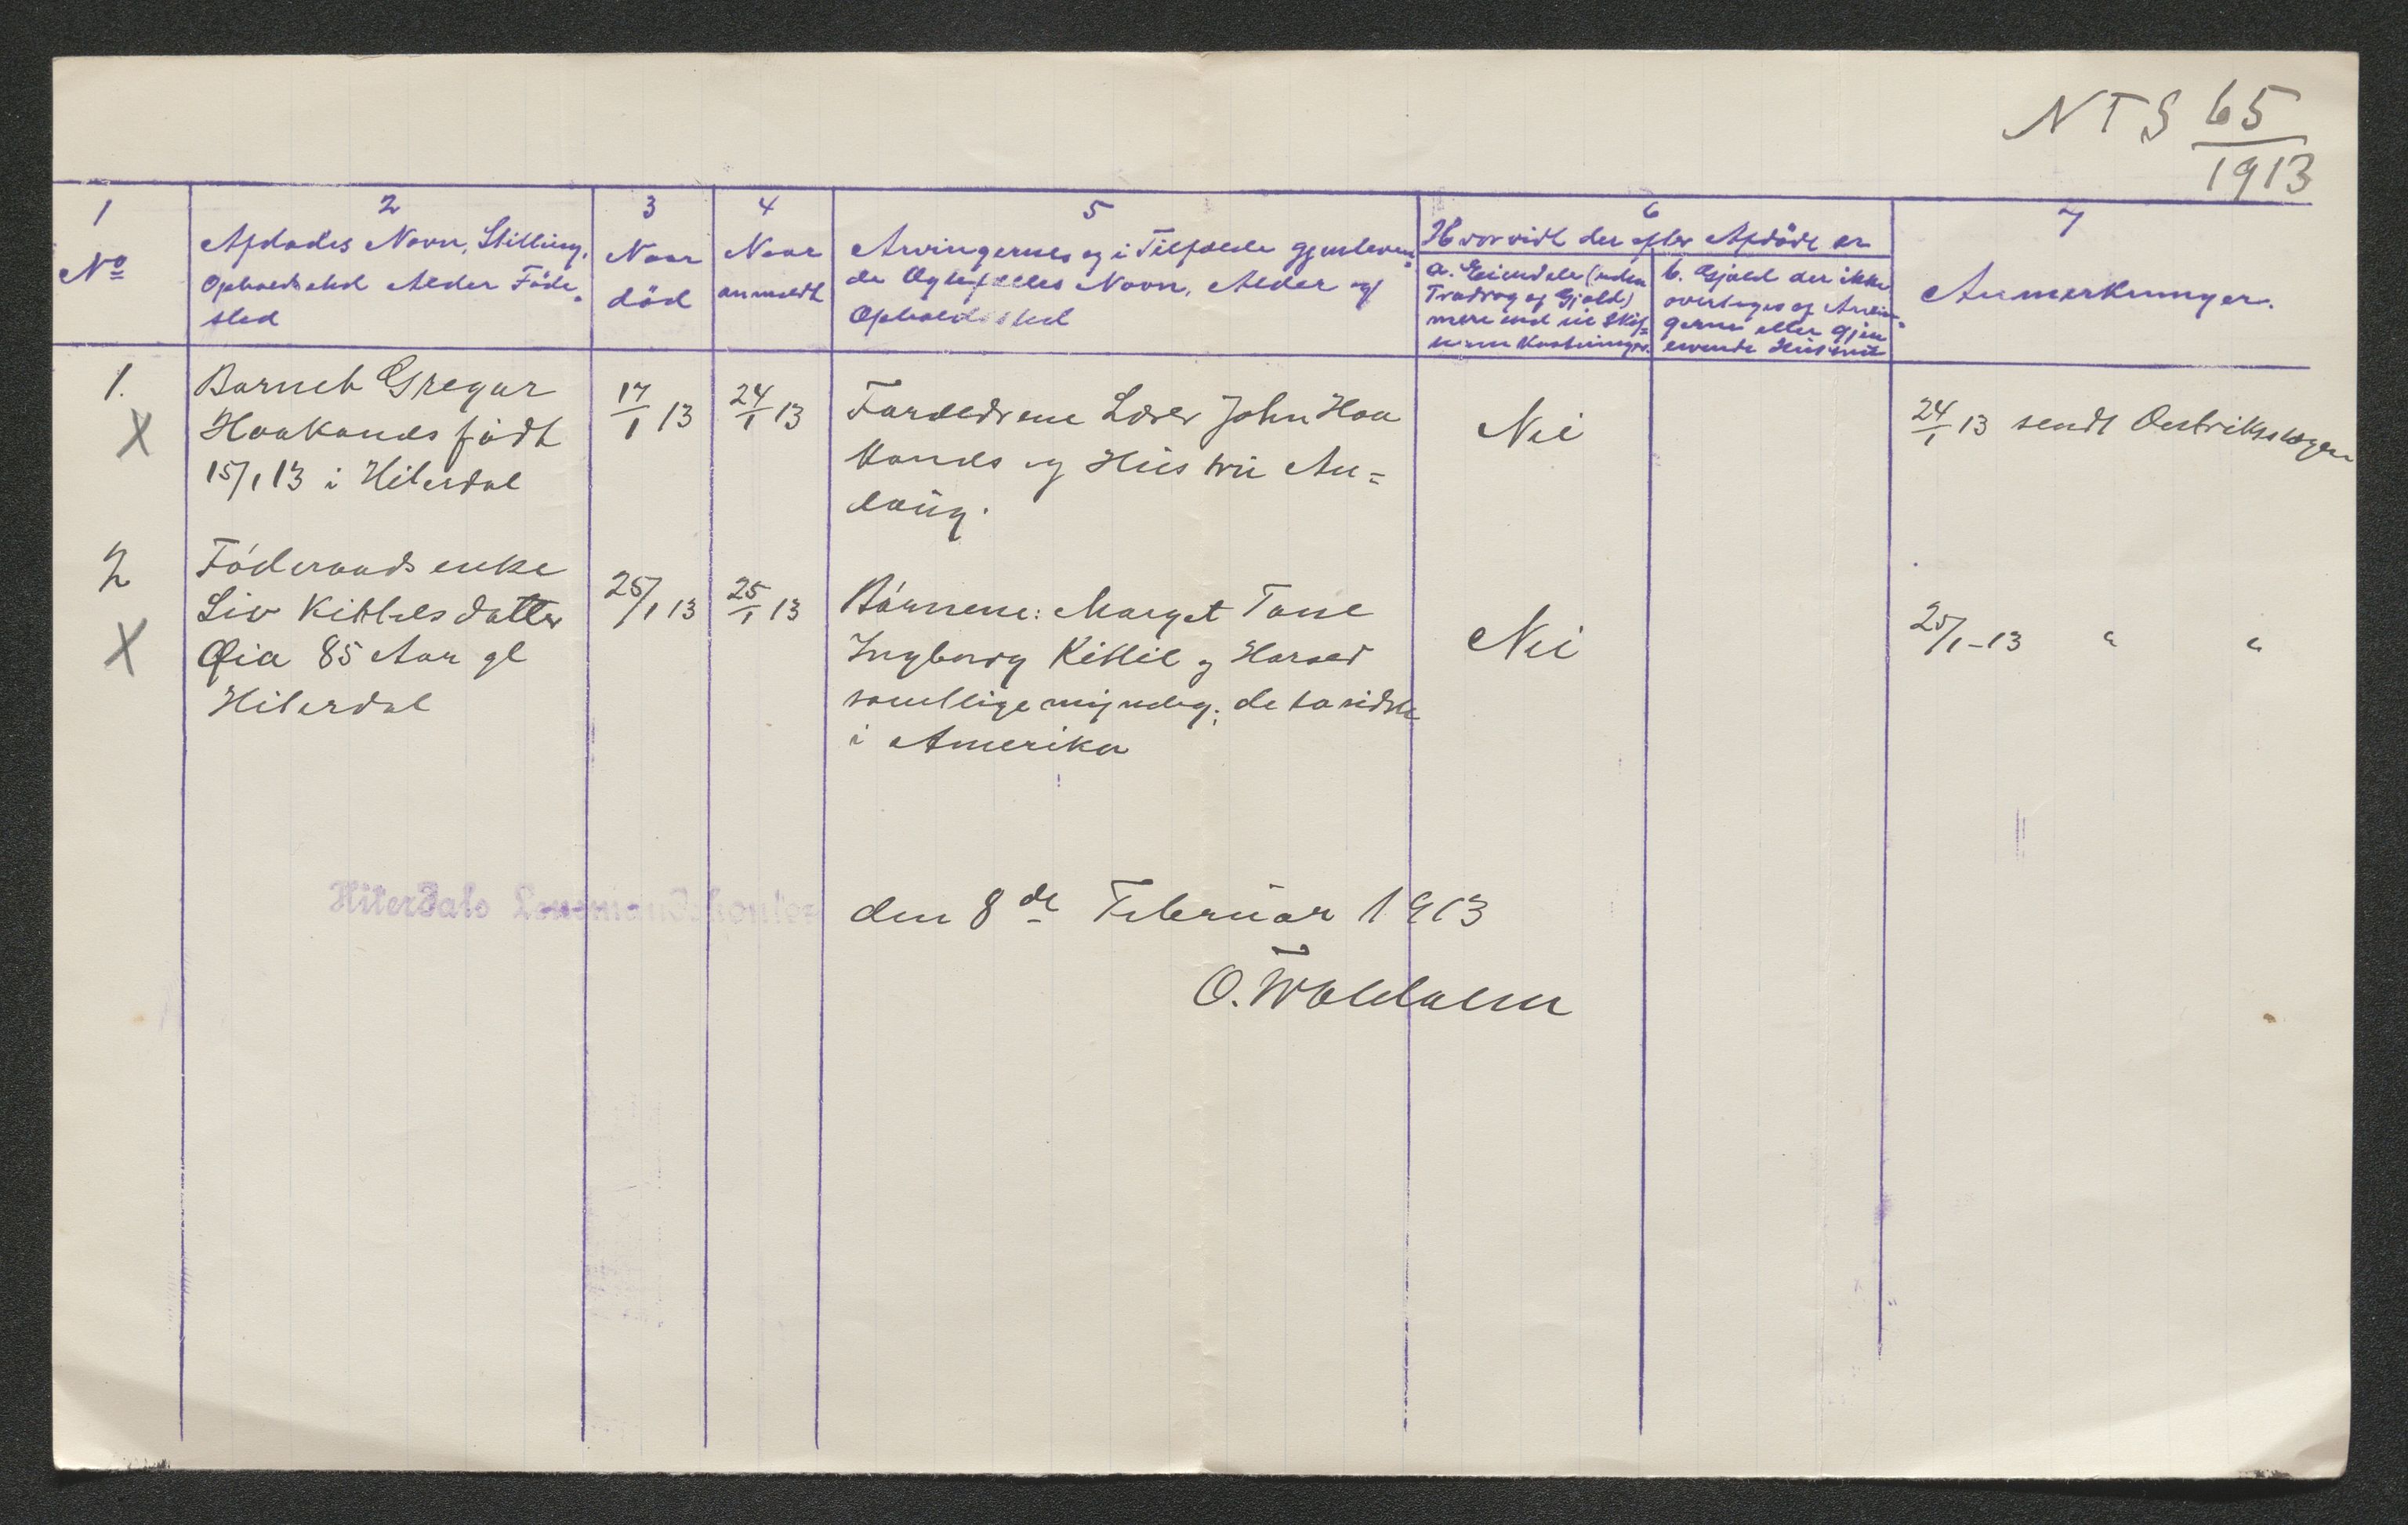 NTS 65/1913
1
No
2
Afdødes Navn, Stilling,
Opholdssted Alder Føde-
sted
3
Naar
død
4
Naar
anmeldt
5
Arvingernes og i Tilfælde gjenleven-
de Ægtefælles Navn, Alder og
Opholdssted
6
Hvorvidt der efter Afdøde er
a. Eiendele (uden
Fradrag af Gjæld)
mere end til Skif-
b. Gjæld der ikke
overtages af Arvin-
gerne eller gjen
levende Hustru
7
Anmerkninger.
1.
X
Barnet Gregar
Haakands født
15/1 13 i Hiterdal
17/1 13
24/1 13
Forældrene Lærer John Haa
kands og Hustru An=
laug.
Nei
24/1 13 sendt
2
X
Føderaadsenke
Liv Kittelsdatter
Øia 85 Aar gl
Hiterdal
25/1 13
25/1 13
Børnene: Marget Tone
Ingborg Kittil og Harald
samtlige myndig; de to sidste
i Amerika
Nei
25/1-13 " "
Hiterdals Lensmandskontor
den 8de Februar 1913